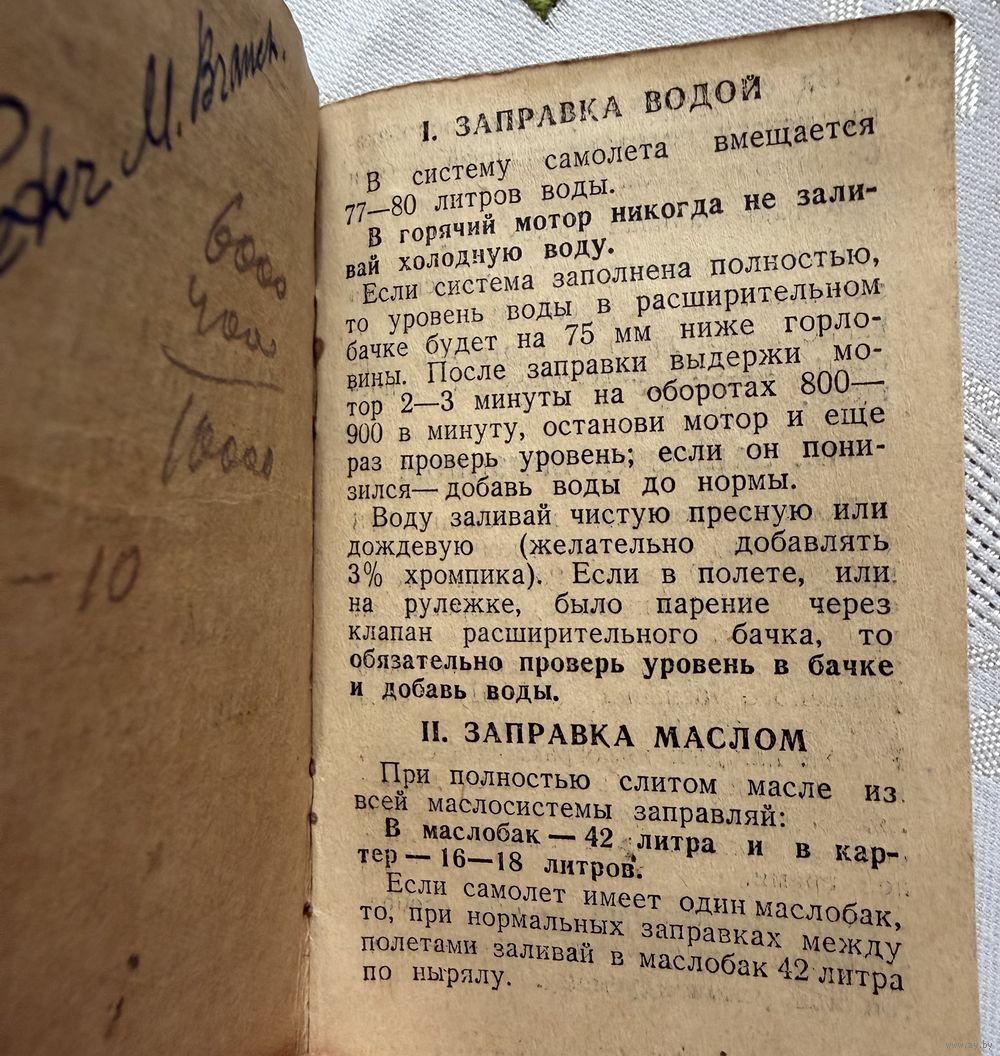 M. Branch.
6000
400
10000
– 10
I. ЗАПРАВКА ВОДОЙ
В систему самолета вмещается
77—80 литров воды.
В горячий мотор никогда не зали-
вай холодную воду.
Если система заполнена полностью,
то уровень воды в расширительном
бачке будет на 75 мм ниже горло-
вины. После заправки выдержи мо-
тор 2—3 минуты на оборотах 800—
900 в минуту, останови мотор и еще
раз проверь уровень; если он пони-
зился—добавь воды до нормы.
Воду заливай чистую пресную или
дождевую (желательно добавлять
3% хромпика). Если в полете, или
на рулежке, было парение через
клапан расширительного бачка, то
обязательно проверь уровень в бачке
и добавь воды.
II. ЗАПРАВКА МАСЛОМ
При полностью слитом масле из
всей маслосистемы заправляй:
В маслобак — 42 литра и в кар-
тер — 16—18 литров.
Если самолет имеет один маслобак,
то, при нормальных заправках между
полетами заливай в маслобак 42 литра
по нырялу.
www.ay.by